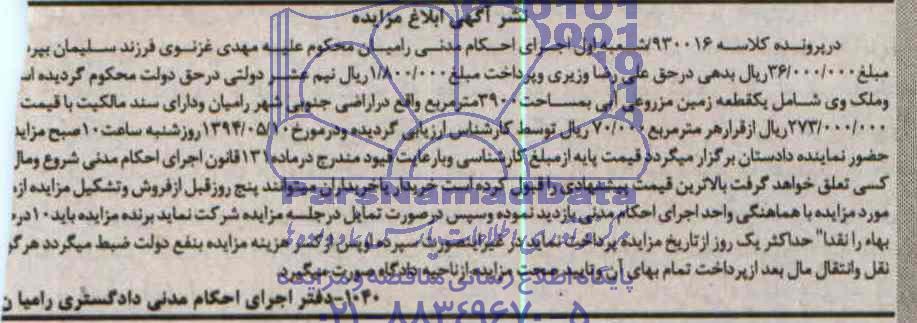 نشر آگهی ابلاغ مزایده
درپرونده کلاسه ۹۳۰۰۱۶/شعبه اول اجرای احکام مدنی رامیان محکوم علیه مهدی غزنوی فرزند سلیمان
مبلغ ۳۶/۰۰۰/۰۰۰ریال بدهی درحق علی رضا وزیری وپرداخت مبلغ ۱/۸۰۰/۰۰۰ریال نیم عشر دولتی درحق دولت محکوم گردیده
وملک وی شامل یکقطعه زمین مزروعی آبی بمساحت ۳۹۰۰مترمربع واقع دراراضی جنوبی شهر رامیان ودارای سند مالکیت با قیمت
۲۷۳/۰۰۰/۰۰۰ریال ازقرارهر مترمربع ۷۰/۰۰۰ ریال توسط کارشناس ارزیابی گردیده ودرمورخ ۱۳۹۴/۰۵/۱۰روزشنبه ساعت ۱۰صبح
حضور نماینده دادستان برگزار میگردد قیمت پایه ازمبلغ کارشناسی وبارعایت قیود مندرج درماده ۱۳۱قانون اجرای احکام مدنی شروع ومال
کسی تعلق خواهد گرفت بالاترین قیمت پیشنهادی را قبول کرده است خریدار یاخریداران میتوانند پنج روزقبل ازفروش وتشکیل مزایده
مورد مزایده با هماهنگی واحد اجرای احکام مدنی بازدید نموده وسپس درصورت تمایل درجلسه مزایده شرکت نماید برنده مزایده باید ۱۰
بهاء را نقدا" حداکثر یک روز ازتاریخ مزایده پرداخت نماید در غیر اینصورت سپرده پس از کسر هزینه مزایده بنفع دولت ضبط میگردد
نقل وانتقال مال بعد ازپرداخت تمام بهای آن وتایید صحت مزایده ازناحیه دادگاه صورت میگیرد
۱۰۴۰-دفتر اجرای احکام مدنی دادگستری رامیان
ParsNamadData
پایگاه اطلاع رسانی مناقصه ومزایده
۰۲۱-۸۸۳۴۹۶۷۰-۵